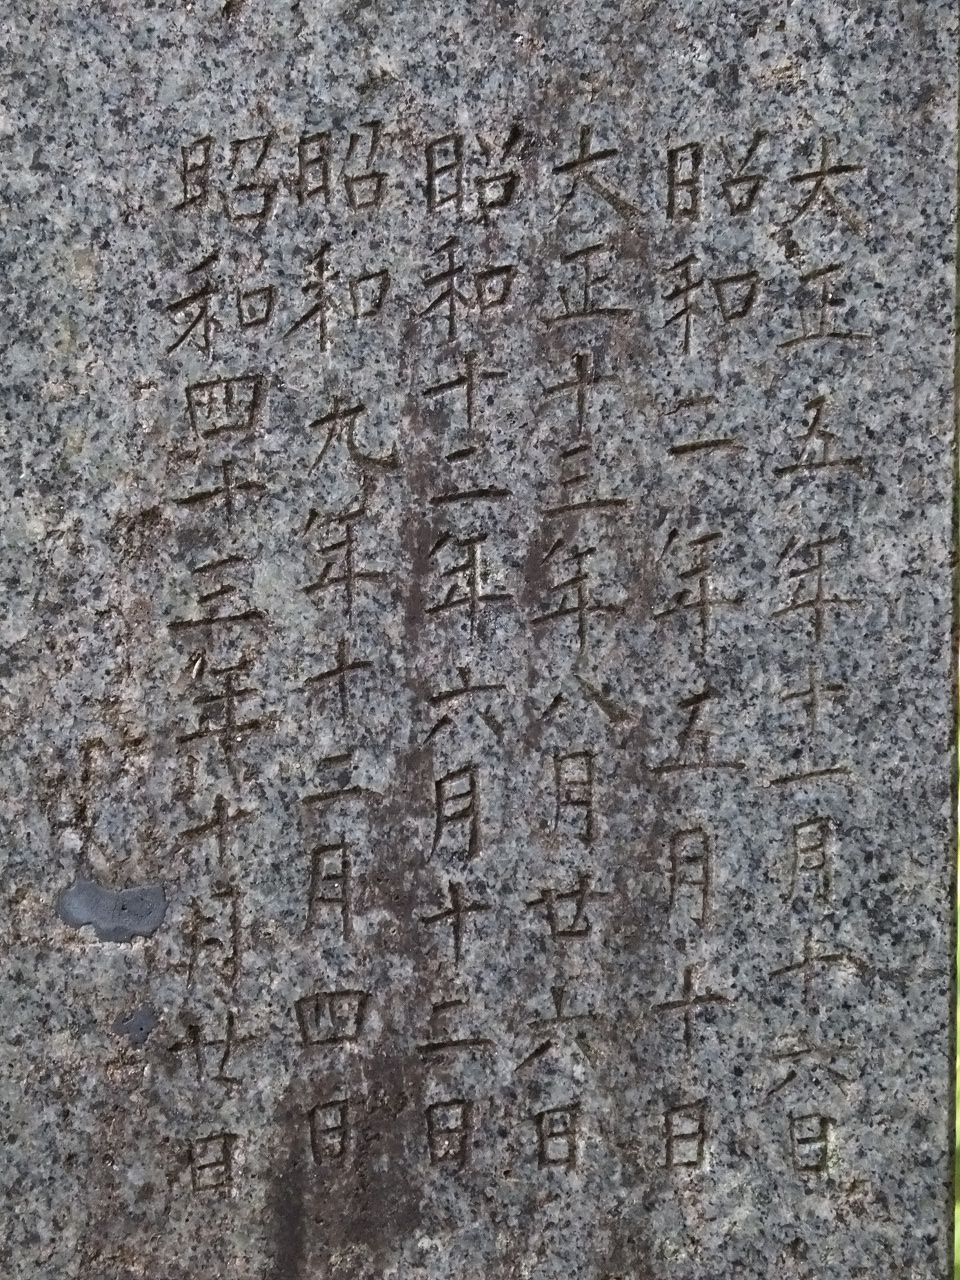 大正五年十一月十六日
昭和二年五月十日
大正十三年八月廿六日
昭和十二年六月十二日
昭和九年十二月四日
昭和四十三年十月廿日